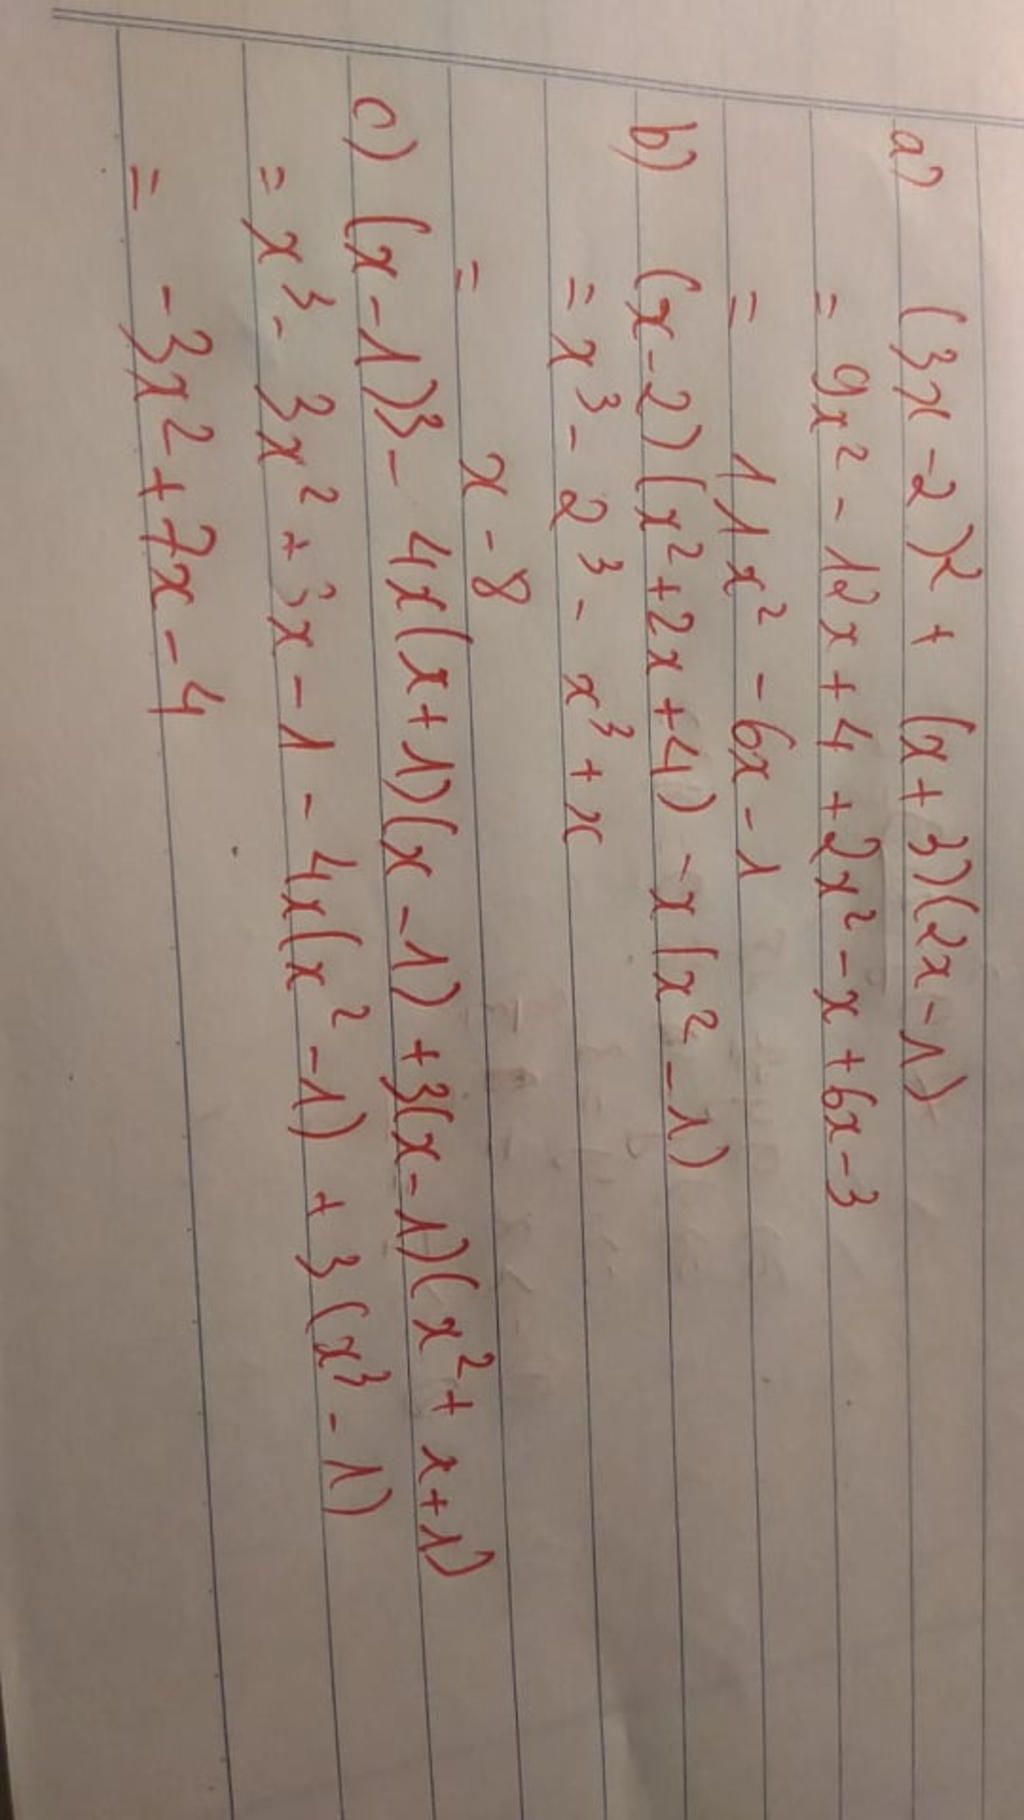 a) (3x-2)² + (x+3)(2x-1)
= 9x² - 12x + 4 + 2x² - x + 6x - 3
= 11x² - 6x - 1
b) (x-2)(x²+2x+4) - x(x²-1)
= x³ - 2³ - x³ + x
= x - 8
c) (x-1)³ - 4x(x+1)(x-1) + 3(x-1)(x²+x+1)
= x³ - 3x² + 3x - 1 - 4x(x²-1) + 3(x³-1)
= -3x² + 7x - 4